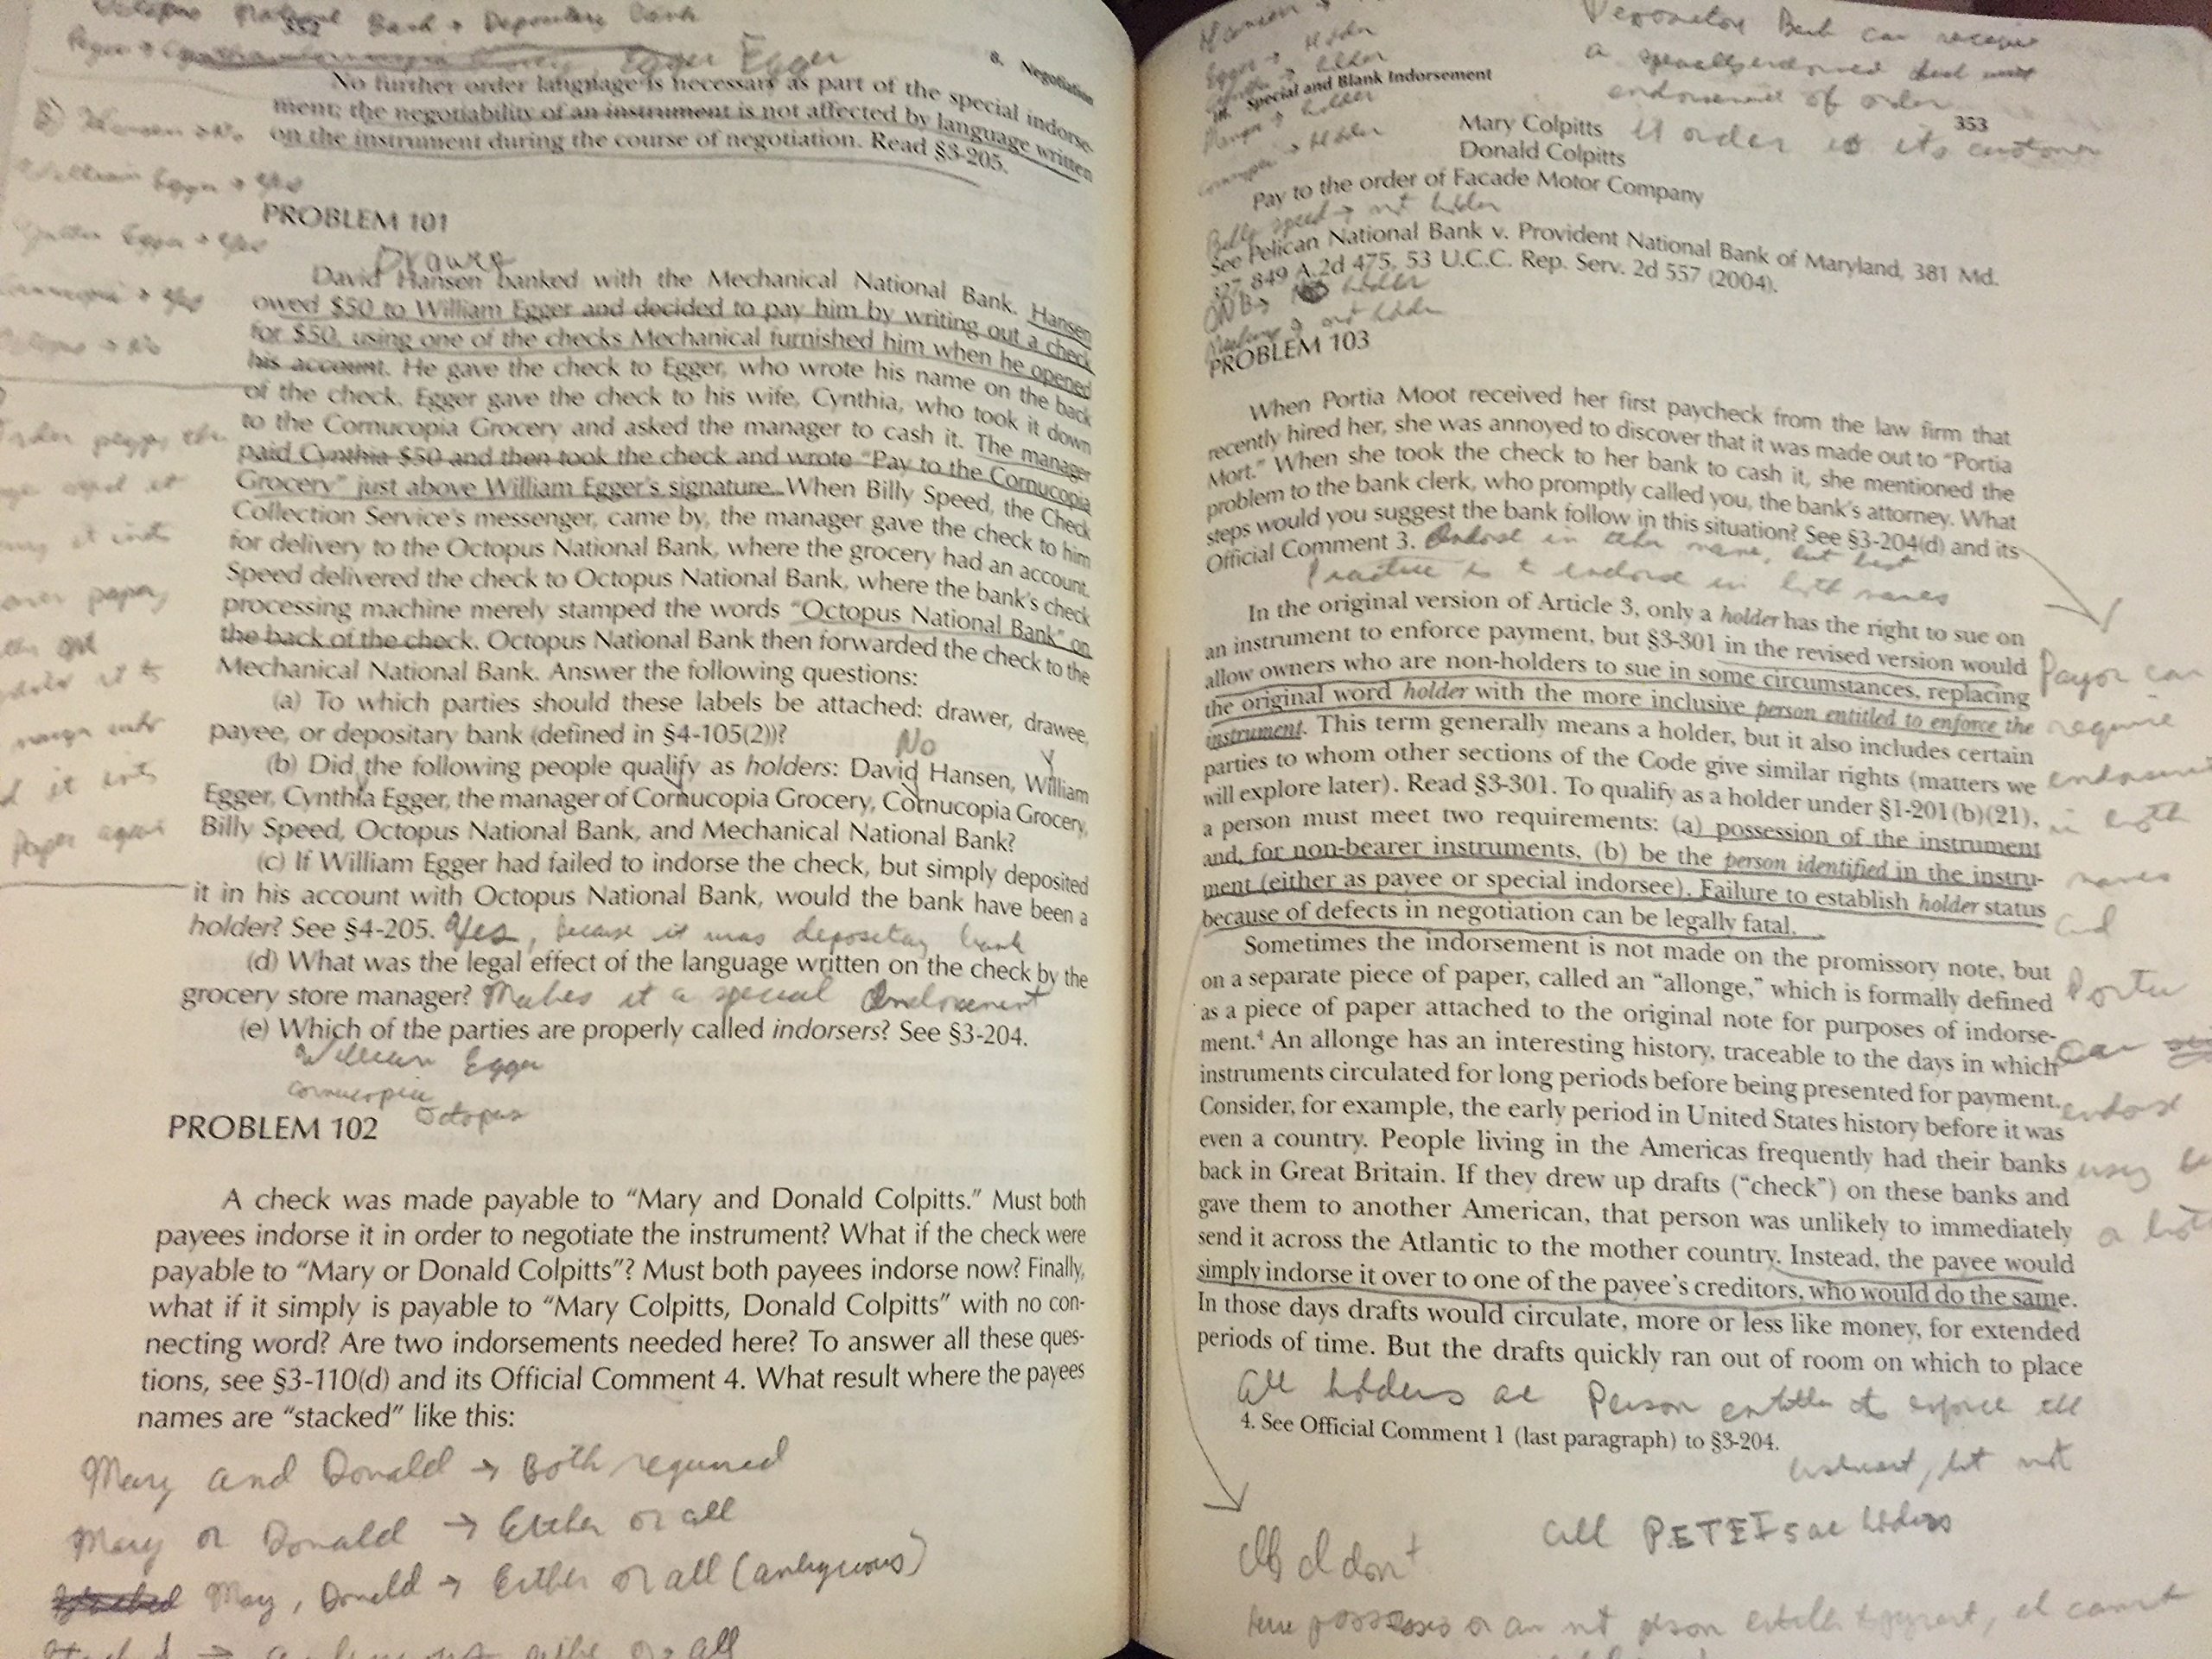 Octopus National Bank → Depositary Bank
352
Payee → Egger Egger
8. Negotiation
No further order language is necessary as part of the special indorse-
ment; the negotiability of an instrument is not affected by language written
on the instrument during the course of negotiation. Read §3-205.
B) Hansen → No
William Egger → Yes
PROBLEM 101
Drawer
David Hansen banked with the Mechanical National Bank. Hansen
owed $50 to William Egger and decided to pay him by writing out a check
for $50, using one of the checks Mechanical furnished him when he opened
his account. He gave the check to Egger, who wrote his name on the back
of the check. Egger gave the check to his wife, Cynthia, who took it down
to the Cornucopia Grocery and asked the manager to cash it. The manager
paid Cynthia $50 and then took the check and wrote "Pay to the Cornucopia
Grocery" just above William Egger's signature. When Billy Speed, the Check
Collection Service's messenger, came by, the manager gave the check to him
for delivery to the Octopus National Bank, where the grocery had an account.
Speed delivered the check to Octopus National Bank, where the bank's check
processing machine merely stamped the words "Octopus National Bank" on
the back of the check. Octopus National Bank then forwarded the check to the
Mechanical National Bank. Answer the following questions:
(a) To which parties should these labels be attached: drawer, drawee,
payee, or depositary bank (defined in §4-105(2))?
No Y
(b) Did the following people qualify as holders: David Hansen, William
Egger, Cynthia Egger, the manager of Cornucopia Grocery, Cornucopia Grocery,
Billy Speed, Octopus National Bank, and Mechanical National Bank?
(c) If William Egger had failed to indorse the check, but simply deposited
it in his account with Octopus National Bank, would the bank have been a
holder? See §4-205. Yes, because it was depositary bank
(d) What was the legal effect of the language written on the check by the
grocery store manager? Makes it a special Endorsement
(e) Which of the parties are properly called indorsers? See §3-204.
William Egger
cornucopia
Octopus
PROBLEM 102
A check was made payable to "Mary and Donald Colpitts." Must both
payees indorse it in order to negotiate the instrument? What if the check were
payable to "Mary or Donald Colpitts"? Must both payees indorse now? Finally,
what if it simply is payable to "Mary Colpitts, Donald Colpitts" with no con-
necting word? Are two indorsements needed here? To answer all these ques-
tions, see §3-110(d) and its Official Comment 4. What result where the payees
names are "stacked" like this:
Mary and Donald → Both required
Mary or Donald → Either or all
May, Donald → Either or all (ambiguous)
Depository Bank can receive
a specially endorsed check
endorsement of order
if order is its customer
III. Special and Blank Indorsement
353
Mary Colpitts
Donald Colpitts
Pay to the order of Facade Motor Company
Billy speed → not holder
See Pelican National Bank v. Provident National Bank of Maryland, 381 Md.
327, 849 A.2d 475, 53 U.C.C. Rep. Serv. 2d 557 (2004).
ONB → holder
not holder
PROBLEM 103
When Portia Moot received her first paycheck from the law firm that
recently hired her, she was annoyed to discover that it was made out to "Portia
Mort." When she took the check to her bank to cash it, she mentioned the
problem to the bank clerk, who promptly called you, the bank's attorney. What
steps would you suggest the bank follow in this situation? See §3-204(d) and its
Official Comment 3. Endorse in either name, but best
Practice is to endorse in both names
In the original version of Article 3, only a holder has the right to sue on
an instrument to enforce payment, but §3-301 in the revised version would
allow owners who are non-holders to sue in some circumstances, replacing
the original word holder with the more inclusive person entitled to enforce the
instrument. This term generally means a holder, but it also includes certain
parties to whom other sections of the Code give similar rights (matters we
will explore later). Read §3-301. To qualify as a holder under §1-201(b)(21),
a person must meet two requirements: (a) possession of the instrument
and, for non-bearer instruments, (b) be the person identified in the instru-
ment (either as payee or special indorsee). Failure to establish holder status
because of defects in negotiation can be legally fatal.
Sometimes the indorsement is not made on the promissory note, but
on a separate piece of paper, called an "allonge," which is formally defined
as a piece of paper attached to the original note for purposes of indorse-
ment.4 An allonge has an interesting history, traceable to the days in which
instruments circulated for long periods before being presented for payment.
Consider, for example, the early period in United States history before it was
even a country. People living in the Americas frequently had their banks
back in Great Britain. If they drew up drafts ("check") on these banks and
gave them to another American, that person was unlikely to immediately
send it across the Atlantic to the mother country. Instead, the payee would
simply indorse it over to one of the payee's creditors, who would do the same.
In those days drafts would circulate, more or less like money, for extended
periods of time. But the drafts quickly ran out of room on which to place
Payor can
require
endorsement
in both
names
and
can
endorse
All holders are Person entitled to enforce the
4. See Official Comment 1 (last paragraph) to §3-204.
instrument, but not
all PETEIs are holders